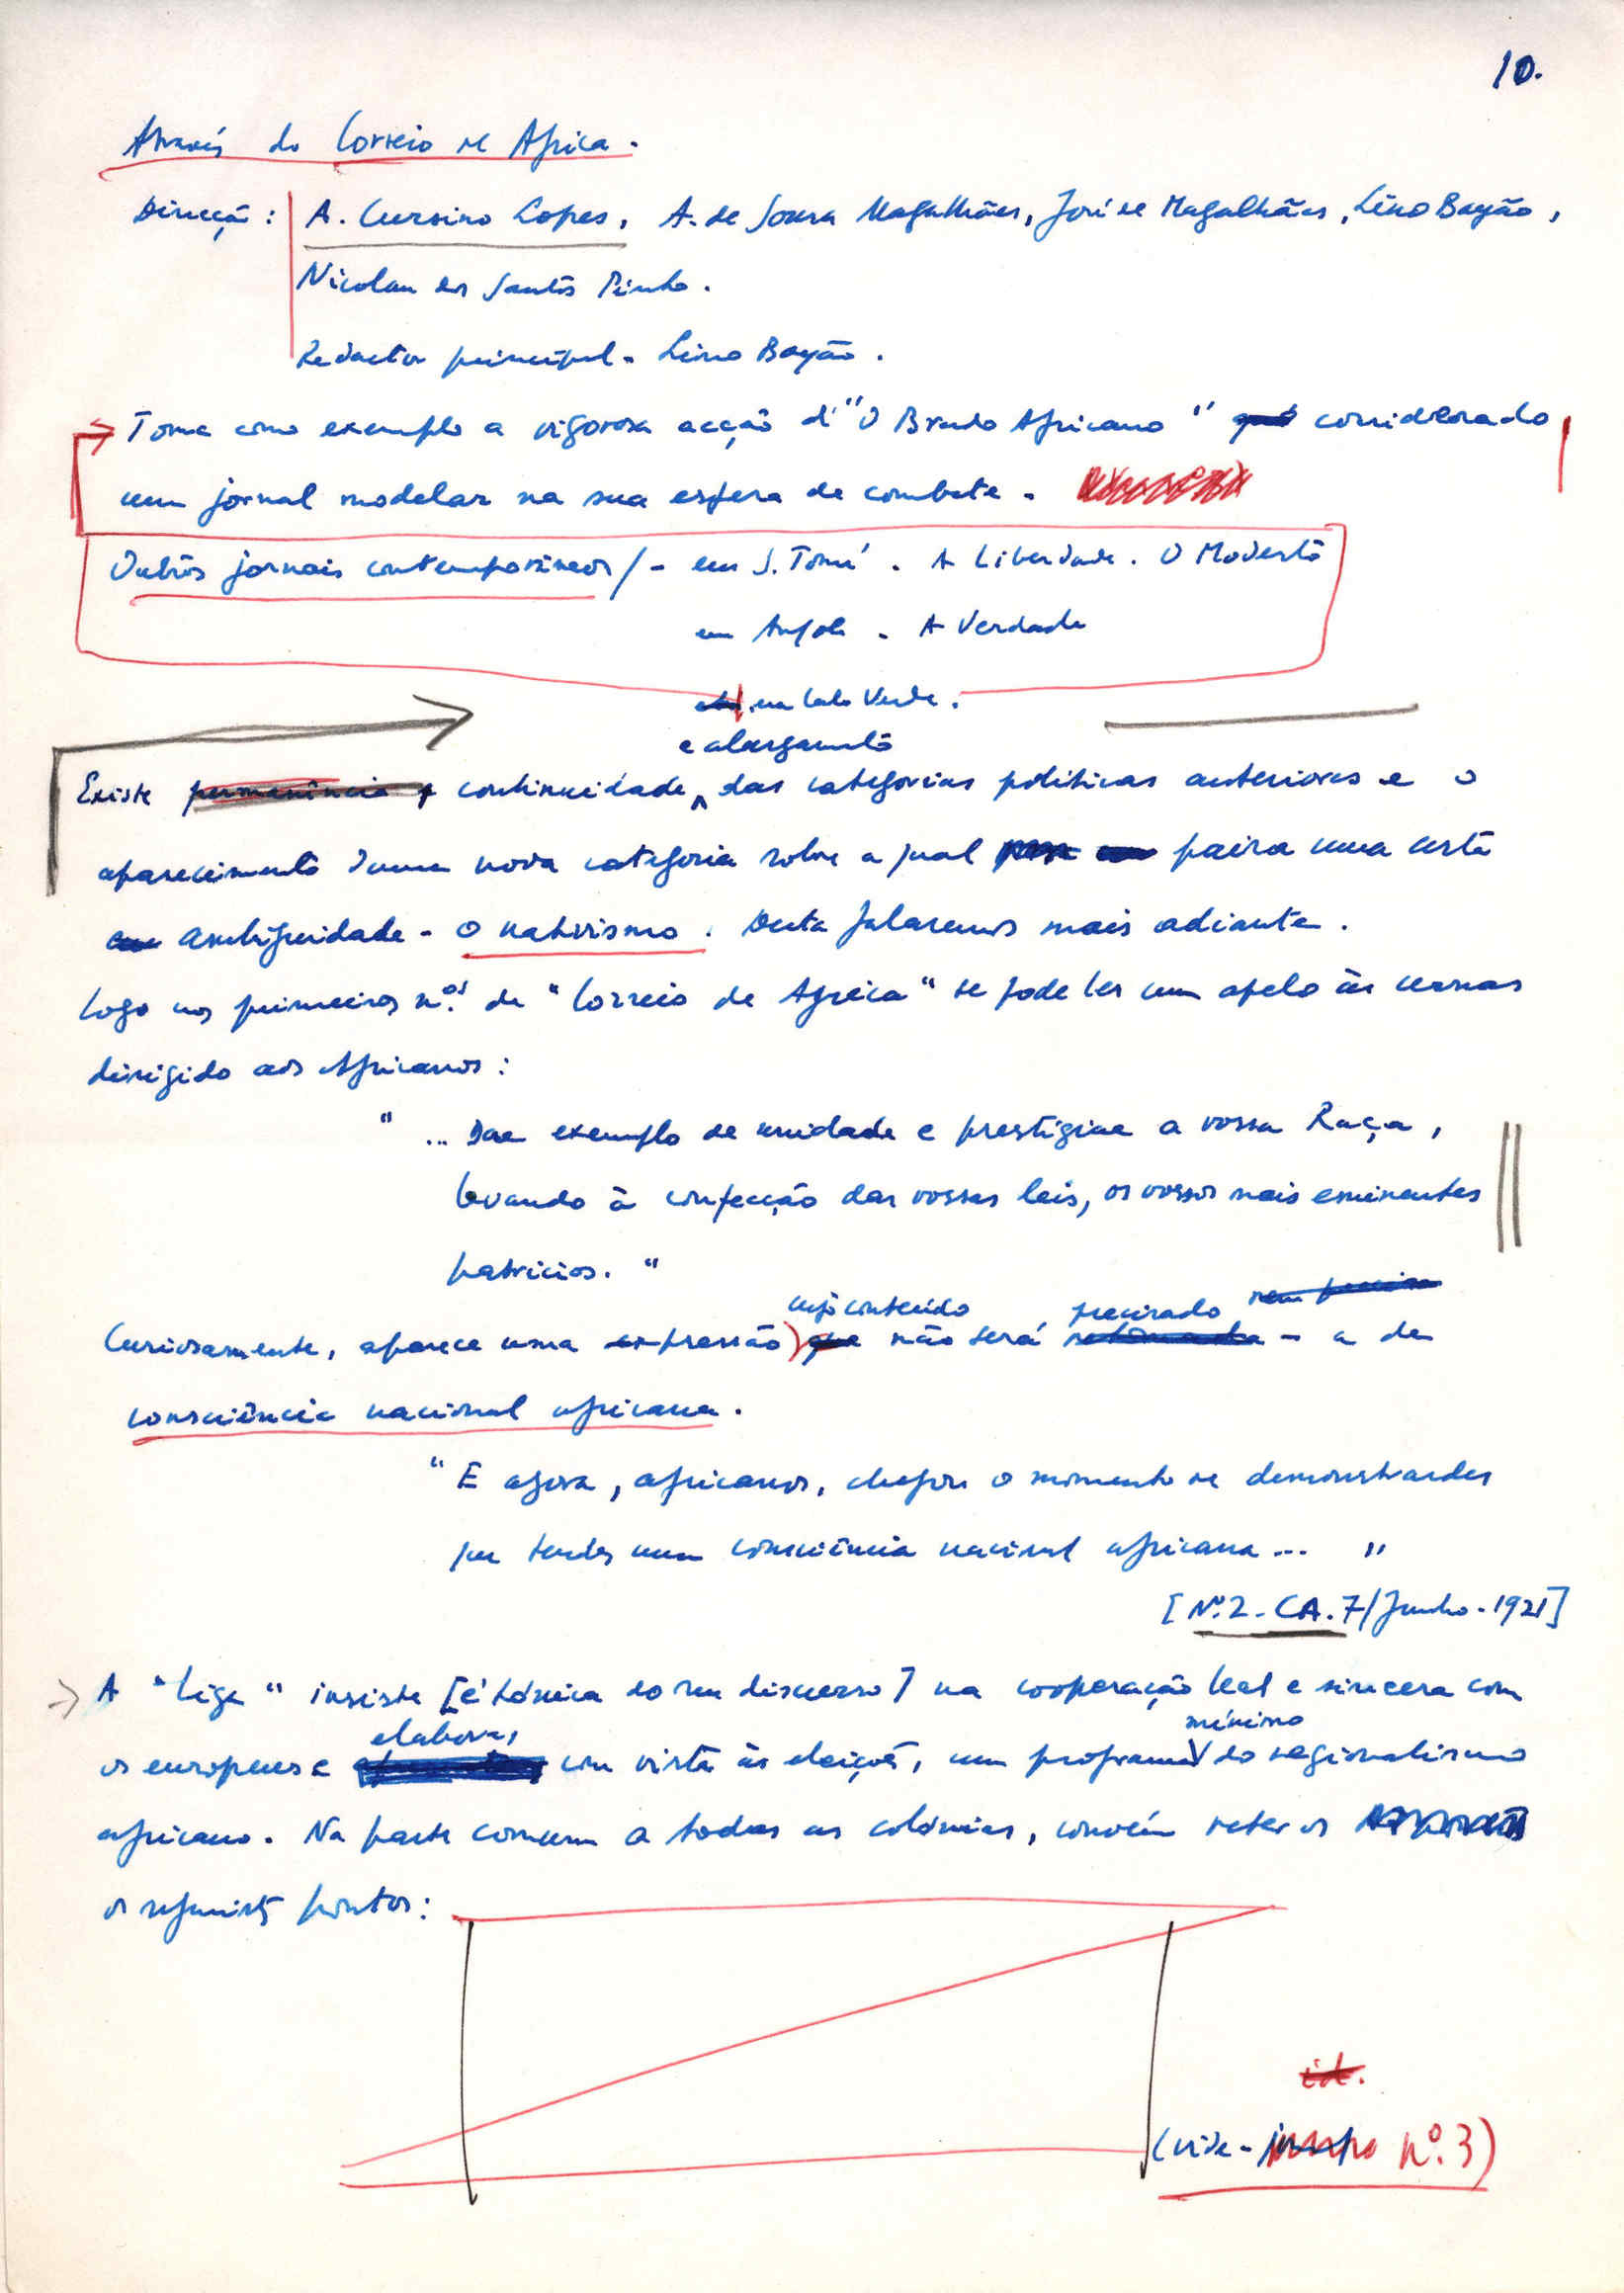 10.
Através do Correio de Africa.
Direcção: A. Cursino Lopes, A. de Sousa Magalhães, José de Magalhães, Lino Bayão,
Nicolau dos Santos Pinto.
Redactor principal - Lino Bayão.
Toma como exemplo a vigorosa acção d'"O Brado Africano" considerado
um jornal modelar na sua esfera de combate.
Outros jornais contemporâneos / - em S. Tomé. A Liberdade. O Modesto
em Angola - A Verdade
em Cabo Verde.
e alargamento
Existe permanência e continuidade das categorias politicas anteriores e o
aparecimento duma nova categoria sobre a qual paira uma certa
ambiguidade - o nativismo. Desta falaremos mais adiante.
Logo nos primeiros nos. do "Correio de Africa" se pode ler um apelo às urnas
dirigido aos Africanos:
"... Dae exemplo de unidade e prestigiae a vossa Raça,
levando à confecção das vossas leis, os vossos mais eminentes
patricios."
cujo conteúdo precisado nem precisa
Curiosamente, aparece uma expressão que não será retomada - a de
consciência nacional africana.
"E agora, africanos, chegou o momento de demonstrardes
que tendes uma consciência nacional africana... "
[Nº.2 - CA. 7/Junho - 1921]
A "Liga" insiste [é tónica do seu discurso] na cooperação leal e sincera com
elabora, mínimo
os europeus e com vista às eleições, um programa do regionalismo
africano. Na parte comum a todas as colónias, convém reter os
os seguintes pontos:
id.
(vide - nº. 3)